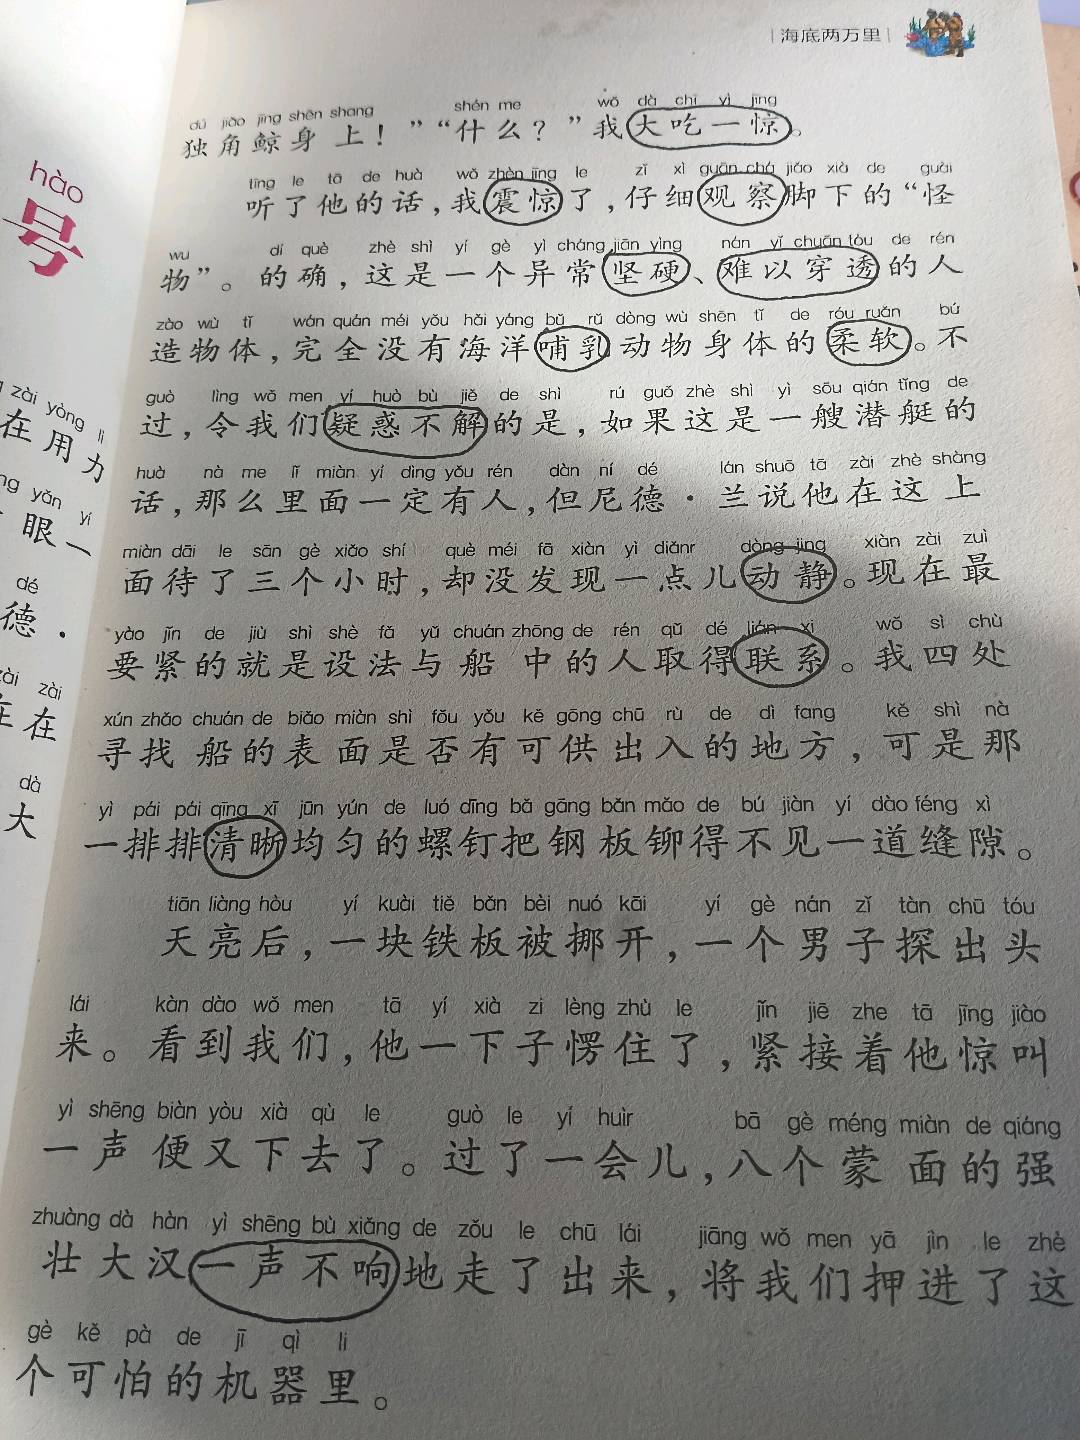 海底两万里
dú jiǎo jīng shēn shang shén me wǒ dà chī yì jīng
独角鲸身上！”“什么？”我大吃一惊。
tīng le tā de huà wǒ zhèn jīng le zǐ xì guān chá jiǎo xià de guài
听了他的话，我震惊了，仔细观察脚下的“怪
wu dí què zhè shì yí gè yì cháng jiān yìng nán yǐ chuān tòu de rén
物”。的确，这是一个异常坚硬、难以穿透的人
zào wù tǐ wán quán méi yǒu hǎi yáng bǔ rǔ dòng wù shēn tǐ de róu ruǎn bú
造物体，完全没有海洋哺乳动物身体的柔软。不
guò lìng wǒ men yí huò bù jiě de shì rú guǒ zhè shì yì sōu qián tǐng de
过，令我们疑惑不解的是，如果这是一艘潜艇的
huà nà me lǐ miàn yí dìng yǒu rén dàn ní dé lán shuō tā zài zhè shàng
话，那么里面一定有人，但尼德·兰说他在这上
miàn dāi le sān gè xiǎo shí què méi fā xiàn yì diǎnr dòng jing xiàn zài zuì
面待了三个小时，却没发现一点儿动静。现在最
yào jǐn de jiù shì shè fǎ yǔ chuán zhōng de rén qǔ dé lián xì wǒ sì chù
要紧的就是设法与船中的人取得联系。我四处
xún zhǎo chuán de biǎo miàn shì fǒu yǒu kě gōng chū rù de dì fang kě shì nà
寻找船的表面是否有可供出入的地方，可是那
yì pái pái qīng xī jūn yún de luó dīng bǎ gāng bǎn mǎo de bú jiàn yí dào féng xì
一排排清晰均匀的螺钉把钢板铆得不见一道缝隙。
tiān liàng hòu yí kuài tiě bǎn bèi nuó kāi yí gè nán zǐ tàn chū tóu
天亮后，一块铁板被挪开，一个男子探出头
lái kàn dào wǒ men tā yí xià zi lèng zhù le jǐn jiē zhe tā jīng jiào
来。看到我们，他一下子愣住了，紧接着他惊叫
yì shēng biàn yòu xià qù le guò le yí huìr bā gè méng miàn de qiáng
一声便又下去了。过了一会儿，八个蒙面的强
zhuàng dà hàn yì shēng bù xiǎng de zǒu le chū lái jiāng wǒ men yā jìn le zhè
壮大汉一声不响地走了出来，将我们押进了这
gè kě pà de jī qì li
个可怕的机器里。
hào
号
zài yòng lì
在用力
yǎn yí
眼一
dé
德·
zài
在
dà
大